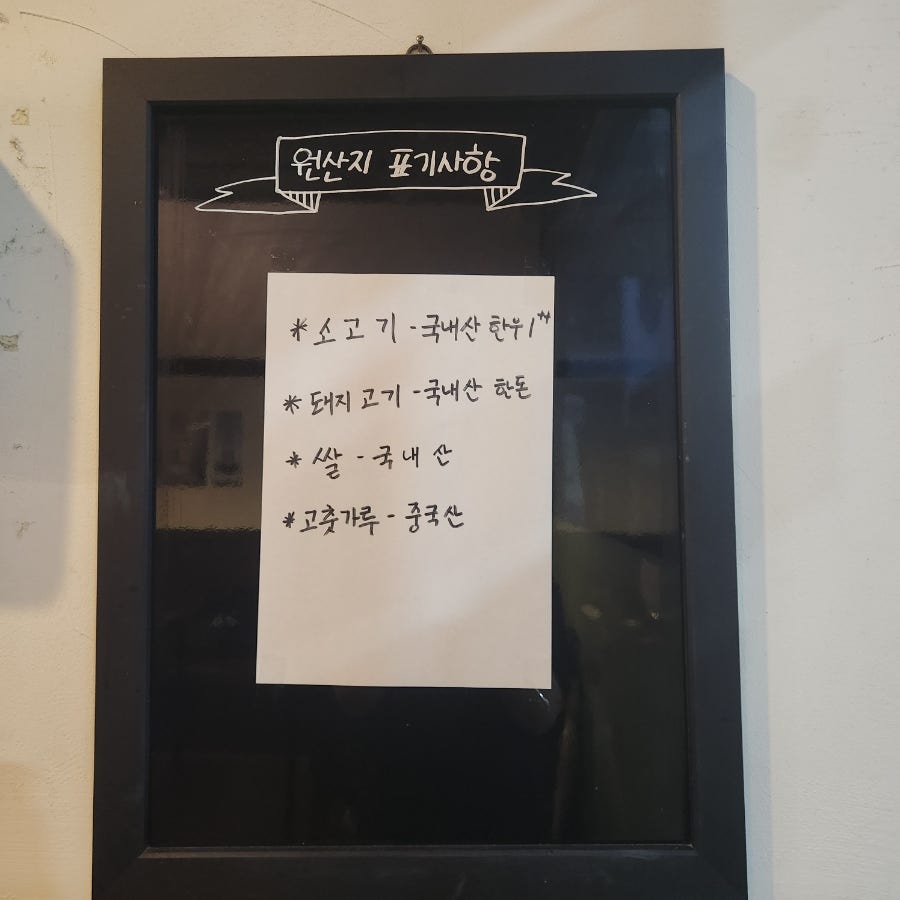 원산지 표기사항
*소고기 - 국내산 한우 1⁺⁺
*돼지고기 - 국내산 한돈
*쌀 - 국내산
*고춧가루 - 중국산